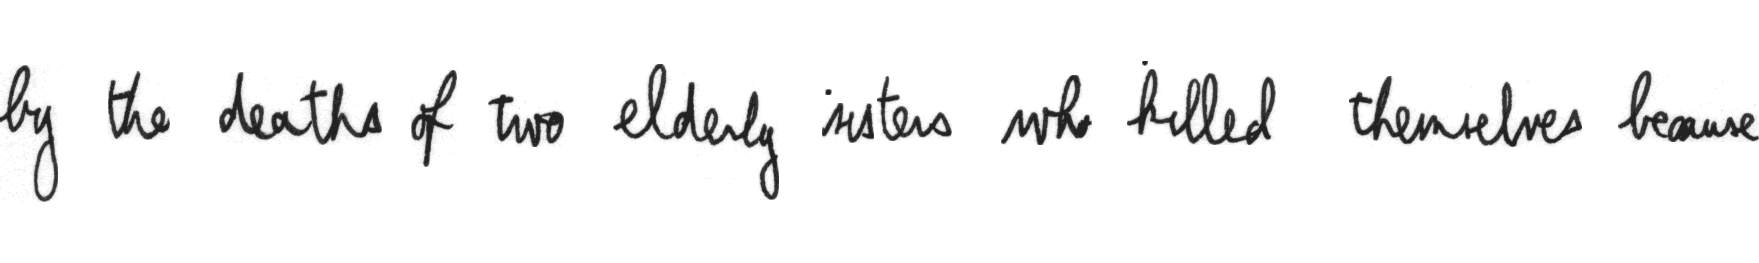 by the deaths of two elderly sisters who killed themselves because